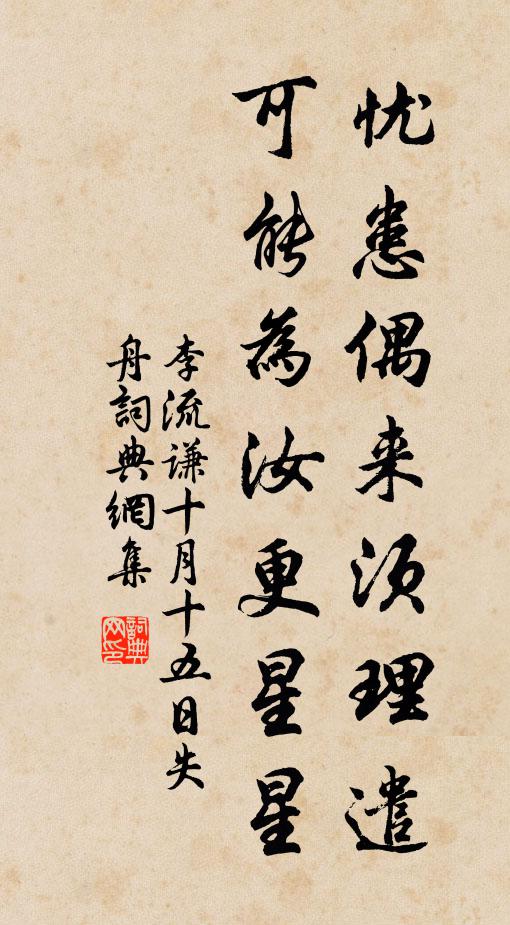 忧患偶来须理遣
可能為汝更星星
李流谦十月十五日失
舟詞典網集
詞典网印